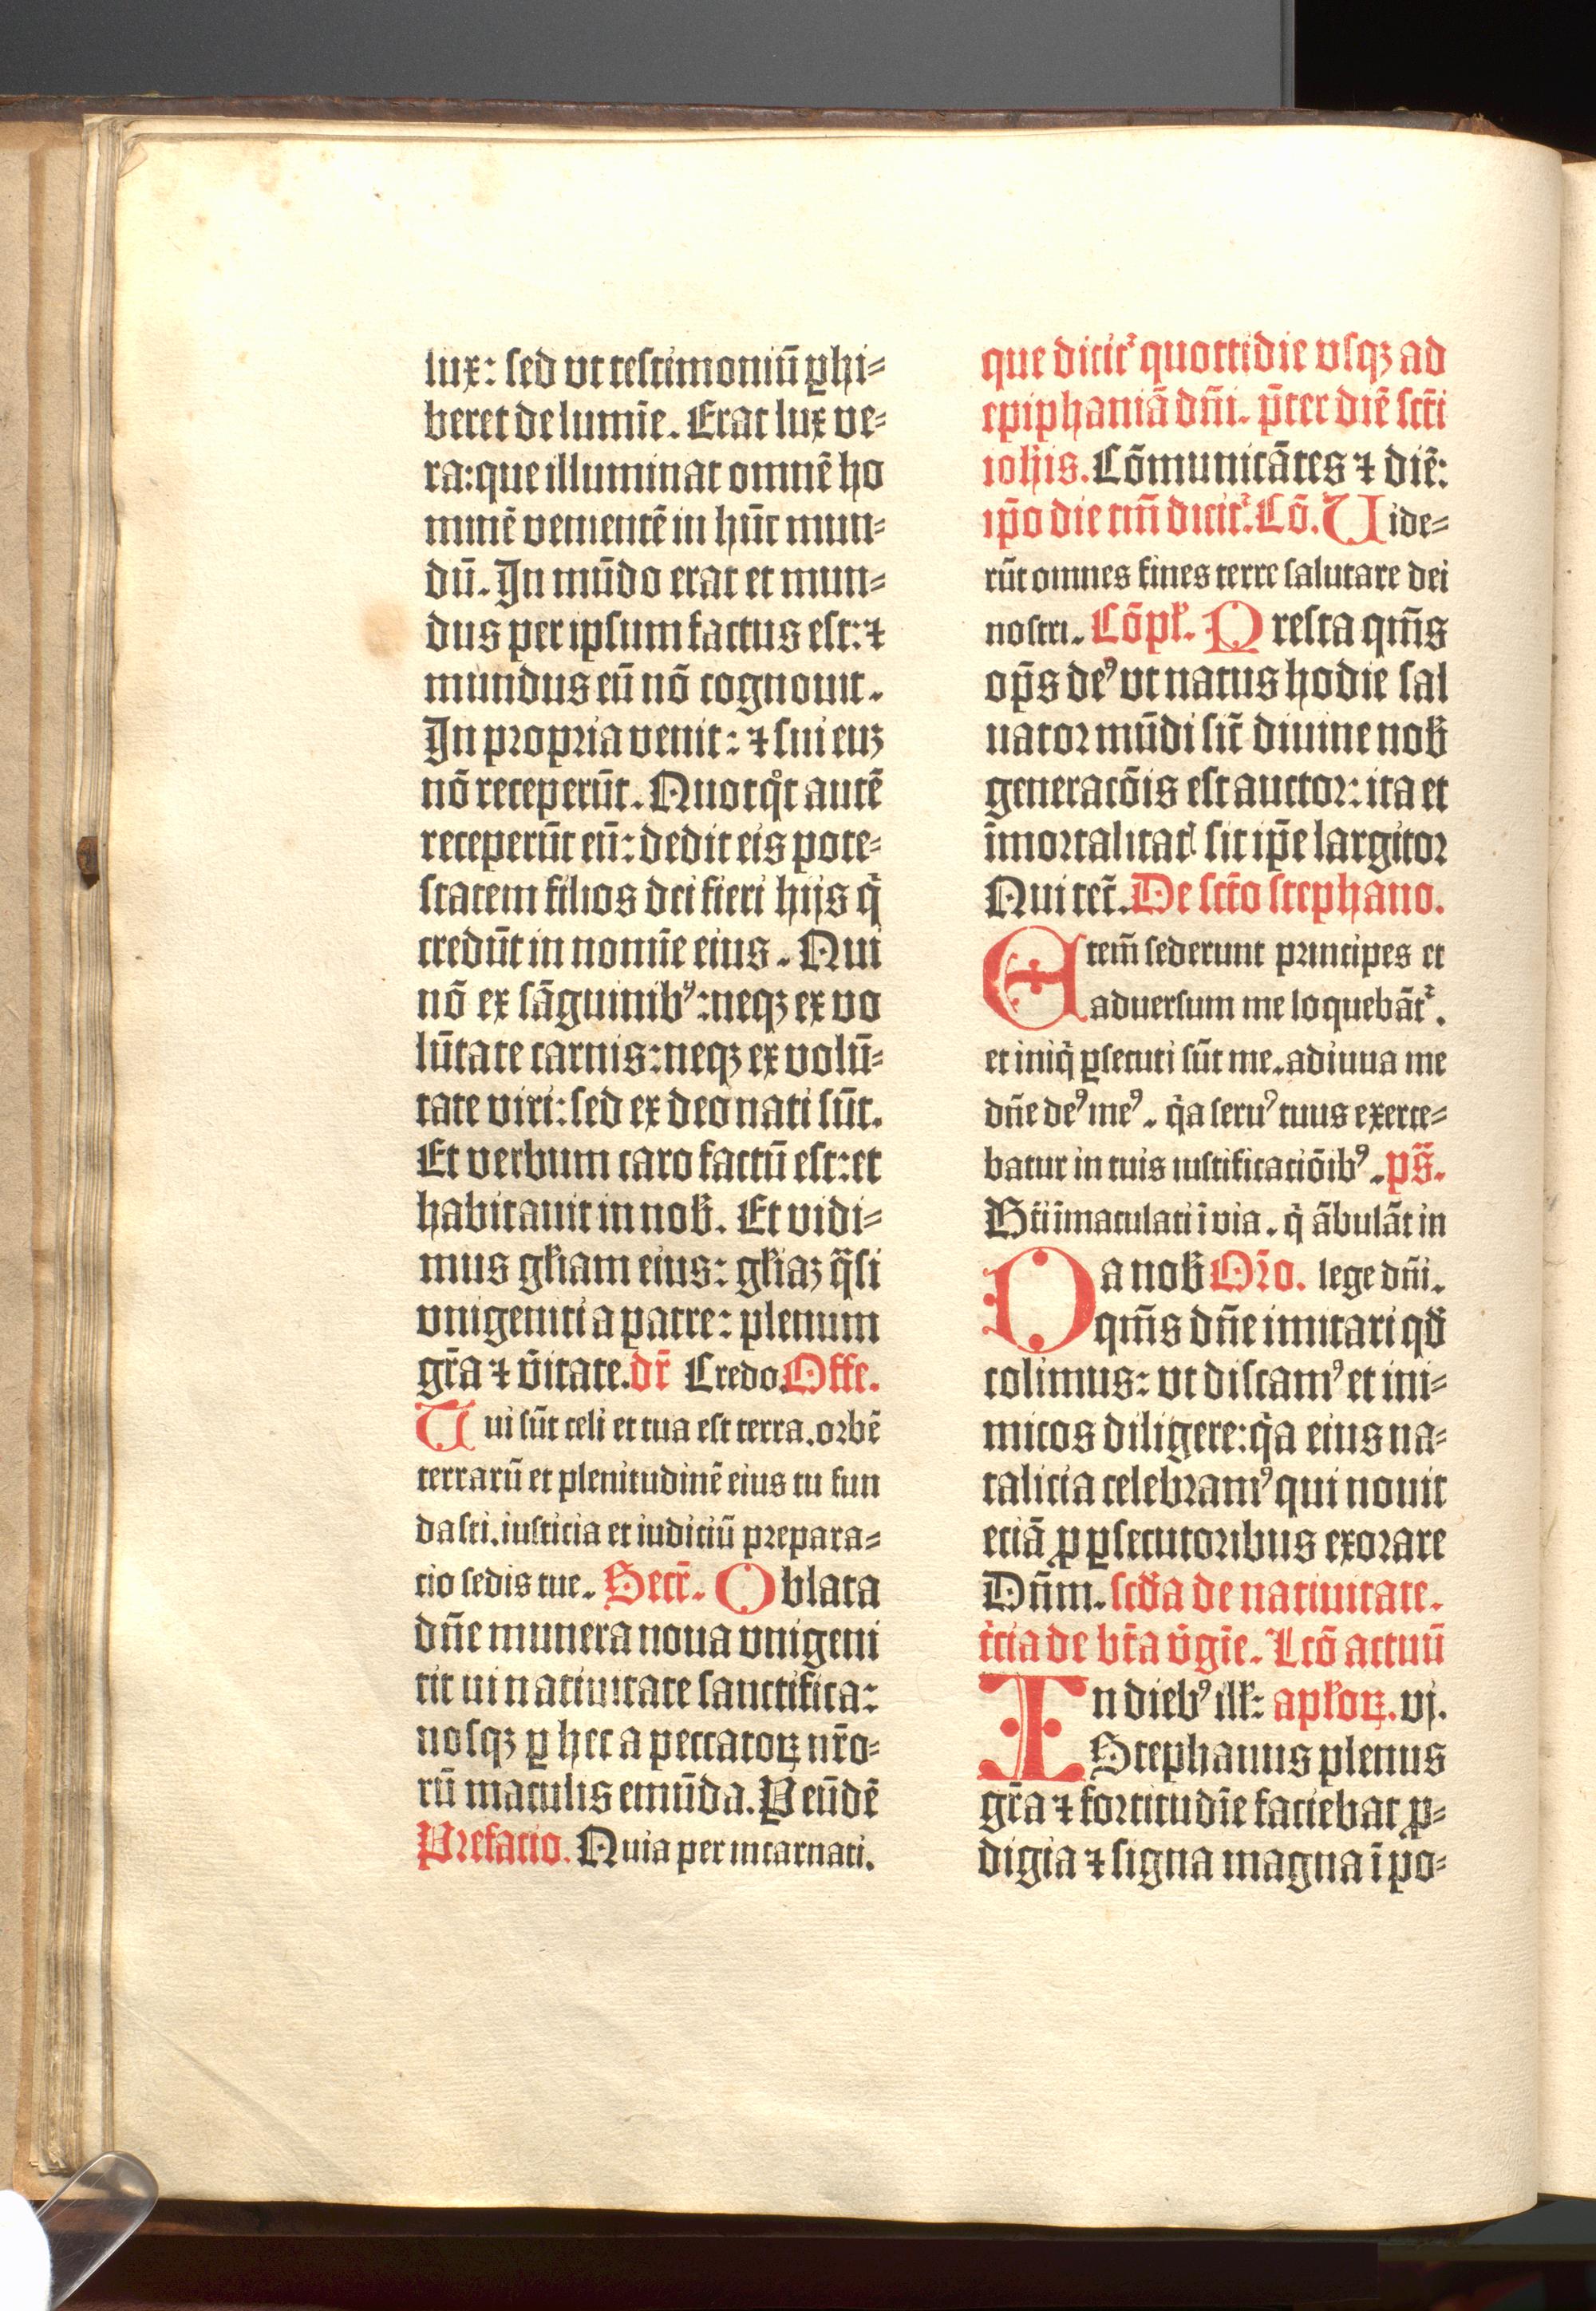 lux: sed vt testimoniū ꝑhi⸗
beret de lumīe. Erat lux ve⸗
ra: que illuminat omnē ho
minē venientē in hūc mun⸗
dū. In mūdo erat et mun⸗
dus per ipsum factus est: ⁊
mundus eū nō cognouit.
In propria venit: ⁊ sui euꝫ
nō receperūt. Quotqͦt autē
receperūt eū: dedit eis pote⸗
statem filios dei fieri hijs q̄
credūt in nomīe eius. Qui
nō ex sāguinibꝰ: neqꝫ ex vo
lūtate carnis: neqꝫ ex volū⸗
tate viri: sed ex deo nati sūt.
Et verbum caro factū est: et
habitauit in nob̄. Et vidi⸗
mus gl̄iam eius: gl̄iaꝫ q̄si
vnigeniti a patre: plenum
gr̄a ⁊ v̄itate. dr̄ Credo. Offe.
Tui sūt celi et tua est terra. orbē
terrarū et plenitudinē eius tu fun
dasti. iusticia et iudiciū prepara⸗
cio sedis tue. Secr̄. Oblata
dn̄e munera noua vnigeni
tit ui natiuitate sanctifica:
nosqꝫ ꝑ hec a peccatoꝝ nr̄o⸗
rū maculis emūda. P eūdē
Prefacio. Quia per incarnati.
que dicit᷑ quottidie vsqꝫ ad
epiphaniā dn̄i. p̄ter diē sct̄i
ioh̄is. Cōmunicātes ⁊ diē:
ip̄o die tm̄ dicit᷑. Cō. Uide⸗
rūt omnes fines terre salutare dei
nostri. Cōpl̄. Presta qm̄s
op̄s deꝰ vt natus hodie sal
uator mūdi sic̄ diuine nob̄
generacōis est auctor: ita et
īmortalitatꝭ sit ip̄e largitor
Qui tec̄. De sct̄o stephano.
Etem̄ sederunt principes et
aduersum me loquebāt᷑.
et iniq̄ ꝑsecuti sūt me. adiuua me
dn̄e deꝰ meꝰ. q̄a seruꝰ tuus exerce⸗
batur in tuis iustificaciōibꝰ. ps̄.
Bt̄i īmaculati ī via. q̄ ābulāt in
Da nob̄ Or̄o. lege dn̄i.
qm̄s dn̄e imitari qd̄
colimus: vt discamꝰ et ini⸗
micos diligere: q̄a eius na⸗
talicia celebramꝰ qui nouit
eciā ꝓ ꝑsecutoribus exorare
Dn̄m. scd̄a de natiuitate.
t̄cia de bt̄a v̄gīe. Lcō actuū
In diebꝰ ill̄: apl̄oꝝ. vj.
Stephanus plenus
gr̄a ⁊ fortitudīe faciebat ꝓ⸗
digia ⁊ signa magna ī po⸗